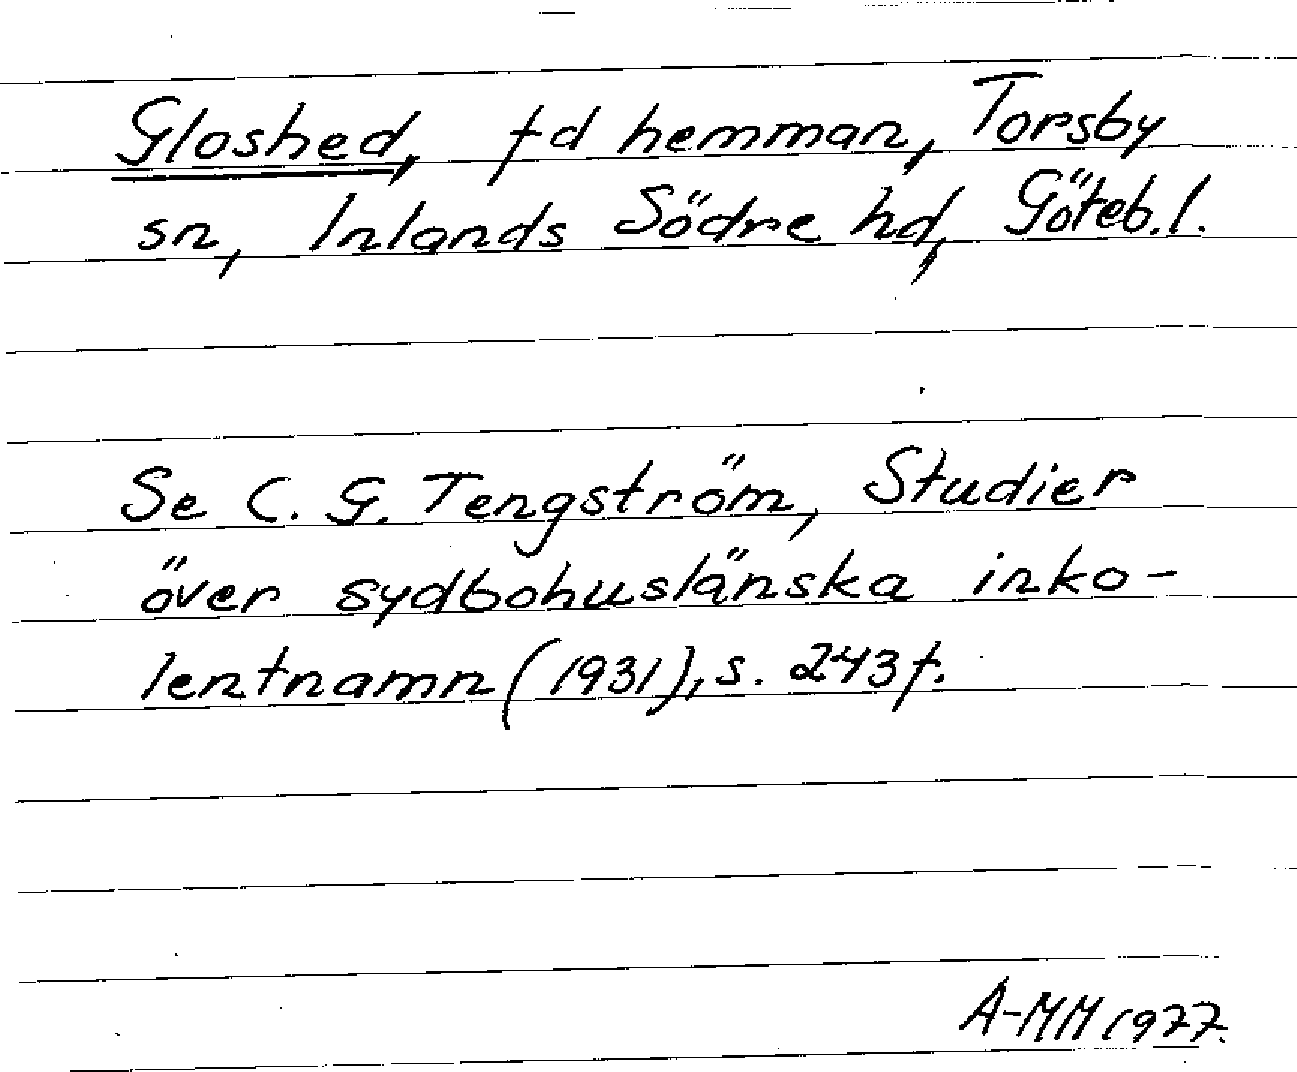 Gloshed, fd hemman, Torsby
sn, Inlands Södre hd, Göteb.l.
Se C. G. Tengström, Studier
över sydbohuslänska inko-
lentnamn (1931), s. 243f.
A-MM 1977.